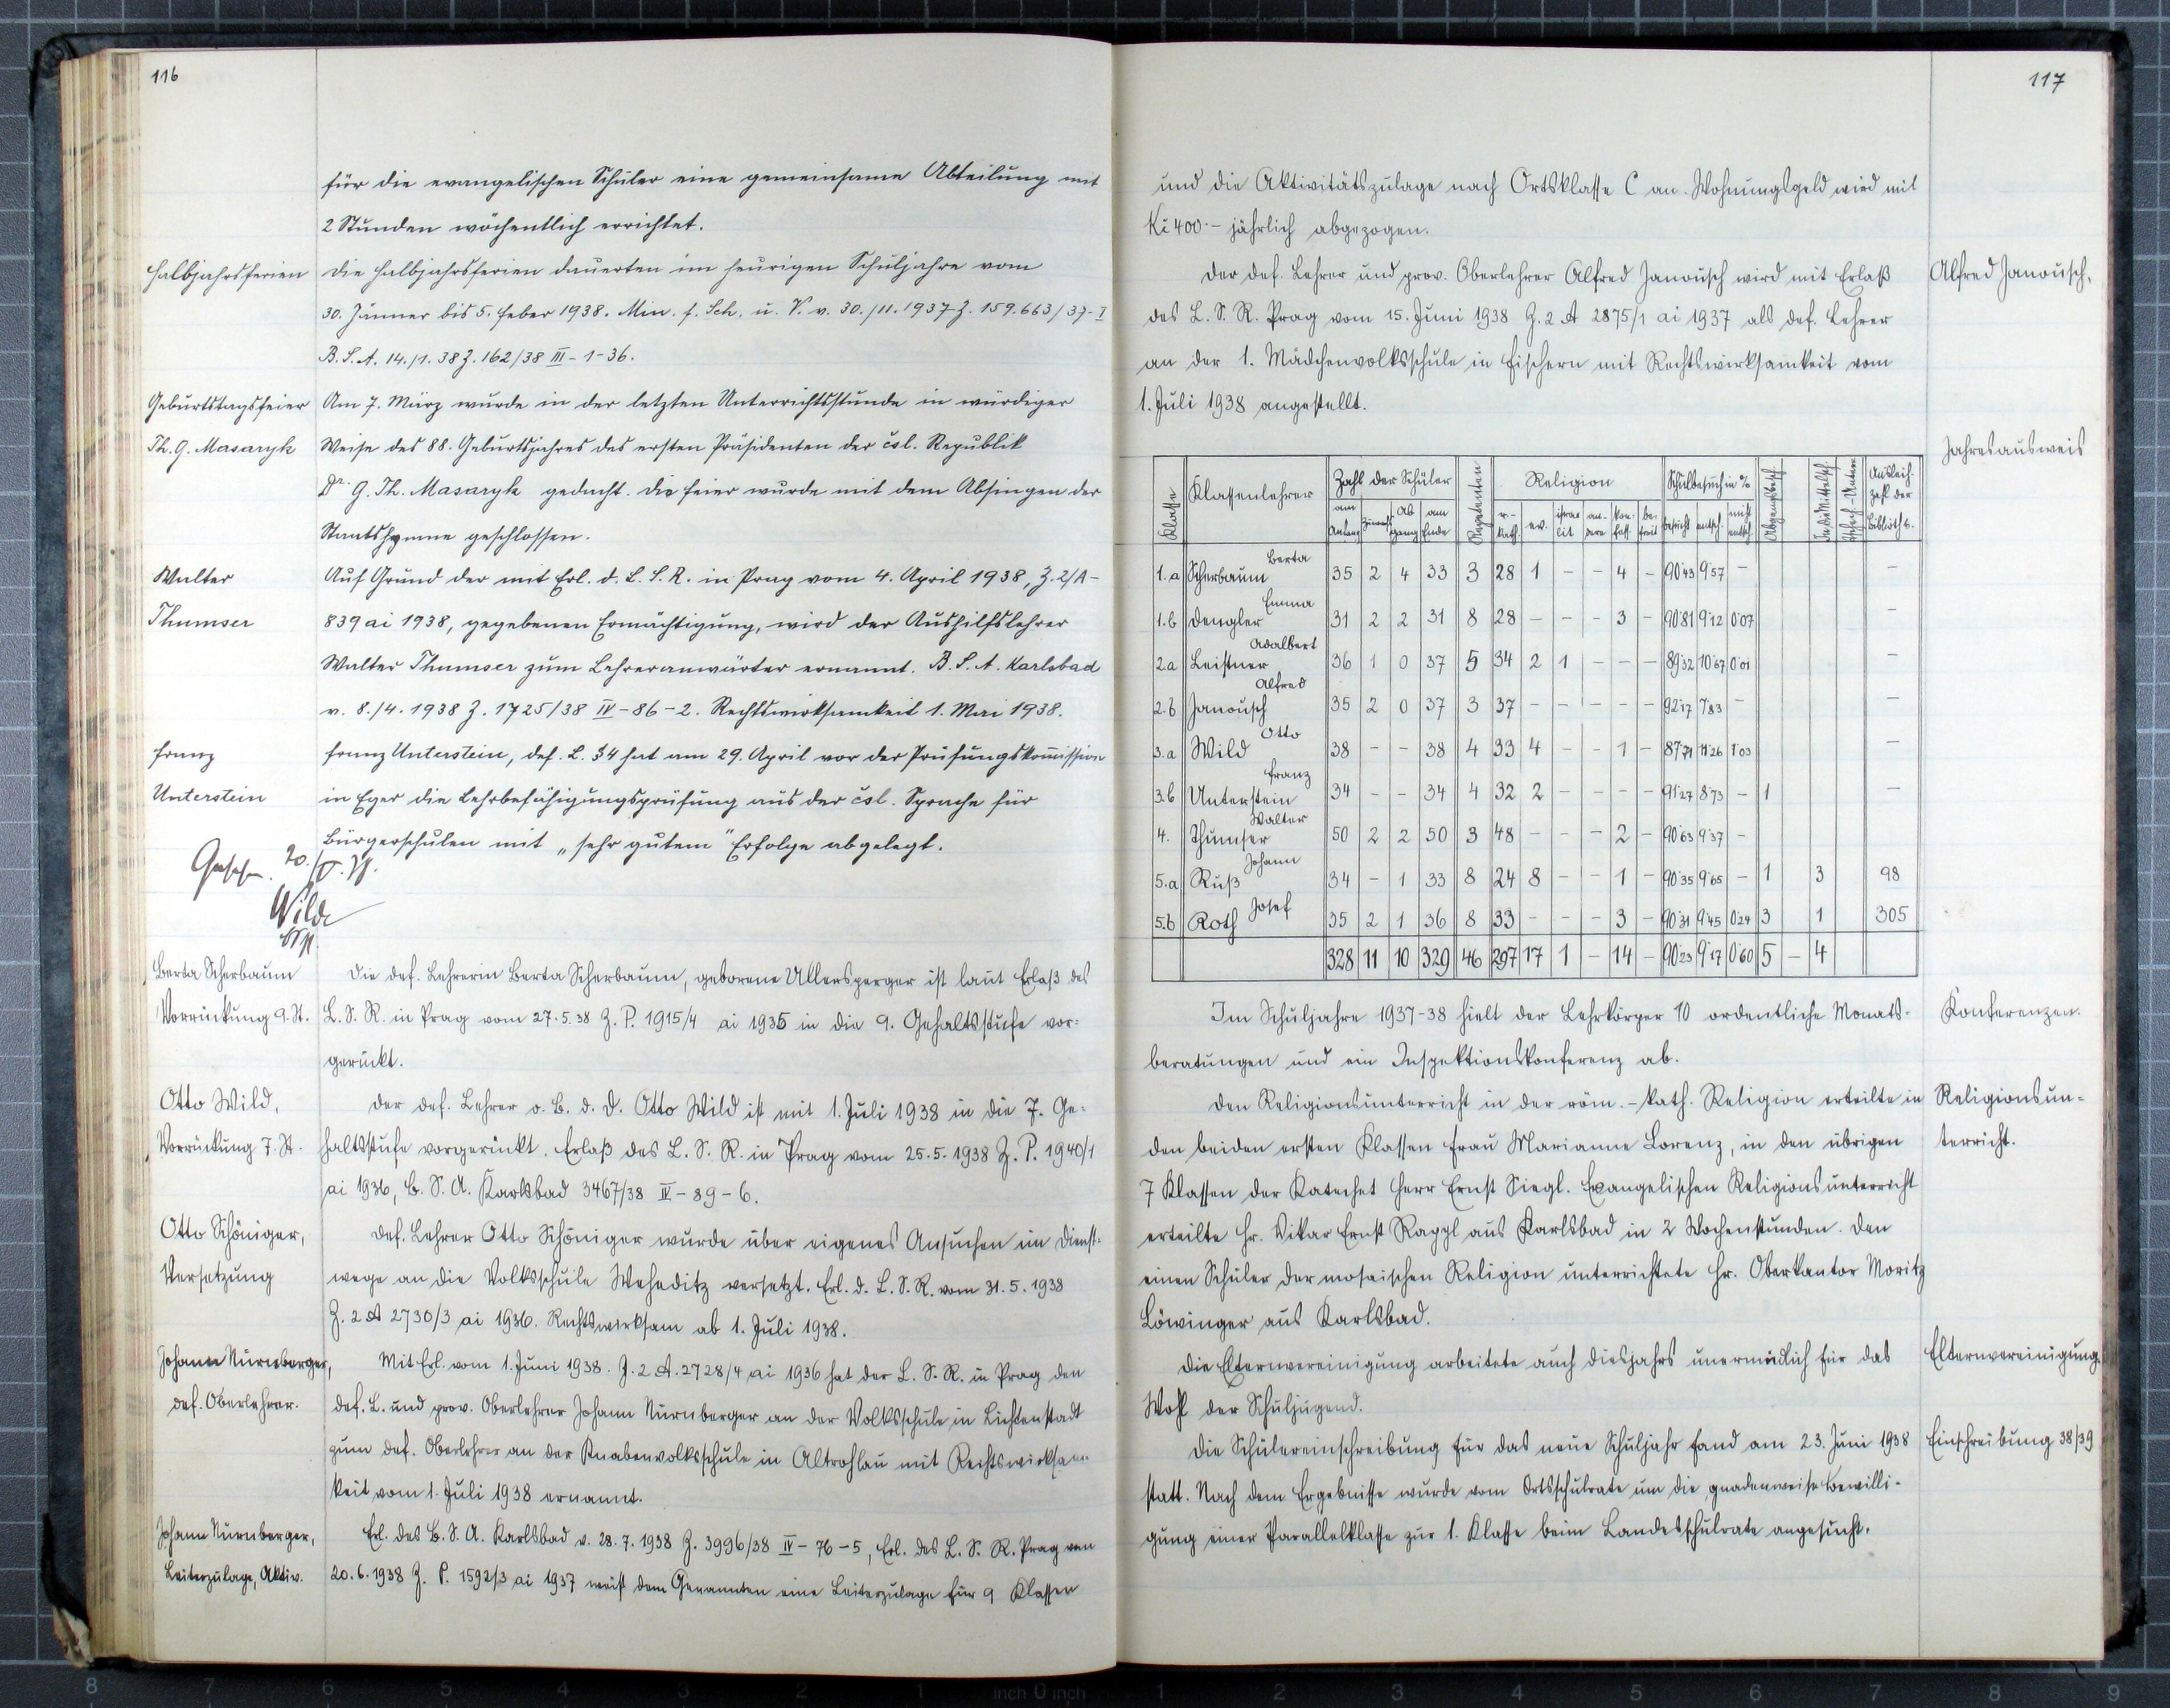 116
für die evangelischen Schüler eine gemeinsame Abteilung mit
2 Stunden wöchentlich errichtet.
Halbjahrsferien
Die Halbjahrsferien dauerten im heurigen Schuljahre vom
30. Jänner bis 5. Feber 1938. Min. f. Sch. u. V. v. 30./11. 1937 Z. 159.663/37-I
B.S.A. 14./1. 38 Z. 162/38 III-1-36.
Geburtstagsfeier
Th. G. Masaryk
Am 7. März wurde in der letzten Unterrichtsstunde in würdiger
Weise des 88. Geburtsjahres des ersten Präsidenten der čsl. Republik
Dr. G. Th. Masaryk gedacht. Die Feier wurde mit dem Absingen der
Staatshymne geschlossen.
Walter
Thumser
Auf Grund der mit Erl. d. L.S.R. in Prag vom 4. April 1938, Z. 2/A-
839 ai 1938, gegebenen Ermächtigung, wird der Aushilfslehrer
Walter Thumser zum Lehreranwärter ernannt. B.S.A. Karlsbad
v. 8./4. 1938 Z. 1725/38 IV-86-2. Rechtswirksamkeit 1. Mai 1938.
Franz
Unterstein
Franz Unterstein, def. L. §4 hat am 29. April vor der Prüfungskommission
in Eger die Lehrbefähigungsprüfung aus der čsl. Sprache für
Bürgerschulen mit „sehr gutem" Erfolge abgelegt.
Gesehen. 20.
Wilde
Berta Scherbaum
Vorrückung 9. St.
Die def. Lehrerin Berta Scherbaum, geborene Ullersperger ist laut Erlaß des
L.S.R. in Prag vom 27.5.38 Z. P. 1915/4 ai 1935 in die 9. Gehaltsstufe vor-
gerückt.
Otto Wild,
Vorrückung 7. St.
Der def. Lehrer o. B. d. D. Otto Wild ist mit 1. Juli 1938 in die 7. Ge-
haltsstufe vorgerückt. Erlaß des L.S.R. in Prag vom 25.5.1938 Z. P. 1940/1
ai 1936, B.S.A. Karlsbad 3467/38 IV-89-6.
Otto Schöniger,
Versetzung
Def. Lehrer Otto Schöniger wurde über eigenes Ansuchen im Dienst-
wege an die Volksschule Weheditz versetzt. Erl. d. L.S.R. vom 31.5.1938
Z. 2 A 2730/3 ai 1936. Rechtswirksam ab 1. Juli 1938.
Johann Nürnberger,
def. Oberlehrer.
Mit Erl. vom 1. Juni 1938. Z. 2 A. 2728/4 ai 1936 hat der L.S.R. in Prag den
def. L. und prov. Oberlehrer Johann Nürnberger an der Volksschule in Lichtenstadt
zum def. Oberlehrer an der Knabenvolksschule in Altrohlau mit Rechtswirksam-
keit vom 1. Juli 1938 ernannt.
Johann Nürnberger,
Leiterzulage, Aktiv.
Erl. des B.S.A. Karlsbad v. 28.7.1938 Z. 3996/38 IV-76-5, Erl. des L.S.R. Prag von
20.6.1938 Z. P. 1592/3 ai 1937 weist dem Genannten eine Leiterzulage für 9 Klassen
117
und die Aktivitätszulage nach Ortsklasse C an. Wohnungsgeld wird mit
Kč 400.- jährlich abgezogen.
Alfred Janousch,
Der def. Lehrer und prov. Oberlehrer Alfred Janousch wird mit Erlaß
des L.S.R. Prag vom 15. Juni 1938 Z. 2 A 2875/1 ai 1937 als def. Lehrer
an der 1. Mädchenvolksschule in Fischern mit Rechtswirksamkeit vom
1. Juli 1938 angestellt.
Jahresausweis
Klasse Klassenlehrer Zahl der Schüler Repetenten Religion Schulbesuch in % Ausleih-
zahl der
Biblioth b.
am Anfang Zuwachs Abgang am Ende r.-kath. ev. israelit andere konfess. befreit besucht entsch. nicht entsch.
1.a Scherbaum Berta 35 2 4 33 3 28 1 - - 4 - 90'43 9'57 - -
1.b Dengler Emma 31 2 2 31 8 28 - - - 3 - 90'81 9'12 0'07 -
2.a Leistner Adalbert 36 1 0 37 5 34 2 1 - - - 89'32 10'67 0'01 -
2.b Janousch Alfred 35 2 0 37 3 37 - - - - - 92'17 7'83 - -
3.a Wild Otto 38 - - 38 4 33 4 - - 1 - 87'71 11'26 1'03 -
3.b Unterstein Franz 34 - - 34 4 32 2 - - - - 91'27 8'73 - 1 -
4. Thumser Walter 50 2 2 50 3 48 - - - 2 - 90'63 9'37 -
5.a Ruß Johann 34 - 1 33 8 24 8 - - 1 - 90'35 9'65 - 1 3 98
5.b Roth Josef 35 2 1 36 8 33 - - - 3 - 90'31 9'45 0'24 3 1 305
328 11 10 329 46 297 17 1 - 14 - 90'23 9'17 0'60 5 - 4
Konferenzen.
Im Schuljahre 1937-38 hielt der Lehrkörper 10 ordentliche Monats-
beratungen und ein Inspektionskonferenz ab.
Religionsun-
terricht.
Den Religionsunterricht in der röm.-kath. Religion erteilte in
den beiden ersten Klassen Frau Marianne Lorenz, in den übrigen
7 Klassen der Katechet Herr Ernst Siegl. Evangelischen Religionsunterricht
erteilte Hr. Vikar Ernst Rappl aus Karlsbad in 2 Wochenstunden. Den
einen Schüler der mosaischen Religion unterrichtete Hr. Oberkantor Moritz
Löwinger aus Karlsbad.
Elternvereinigung.
Die Elternvereinigung arbeitete auch diesjahrs unermüdlich für das
Wohl der Schuljugend.
Einschreibung 38/39
Die Schülereinschreibung für das neue Schuljahr fand am 23. Juni 1938
statt. Nach dem Ergebnisse wurde vom Ortsschulrate um die gnadenweise Bewilli-
gung einer Parallelklasse zur 1. Klasse beim Landesschulrate angesucht.
8 7 6 5 4 3 2 1 inch 0 inch 1 2 3 4 5 6 7 8 9